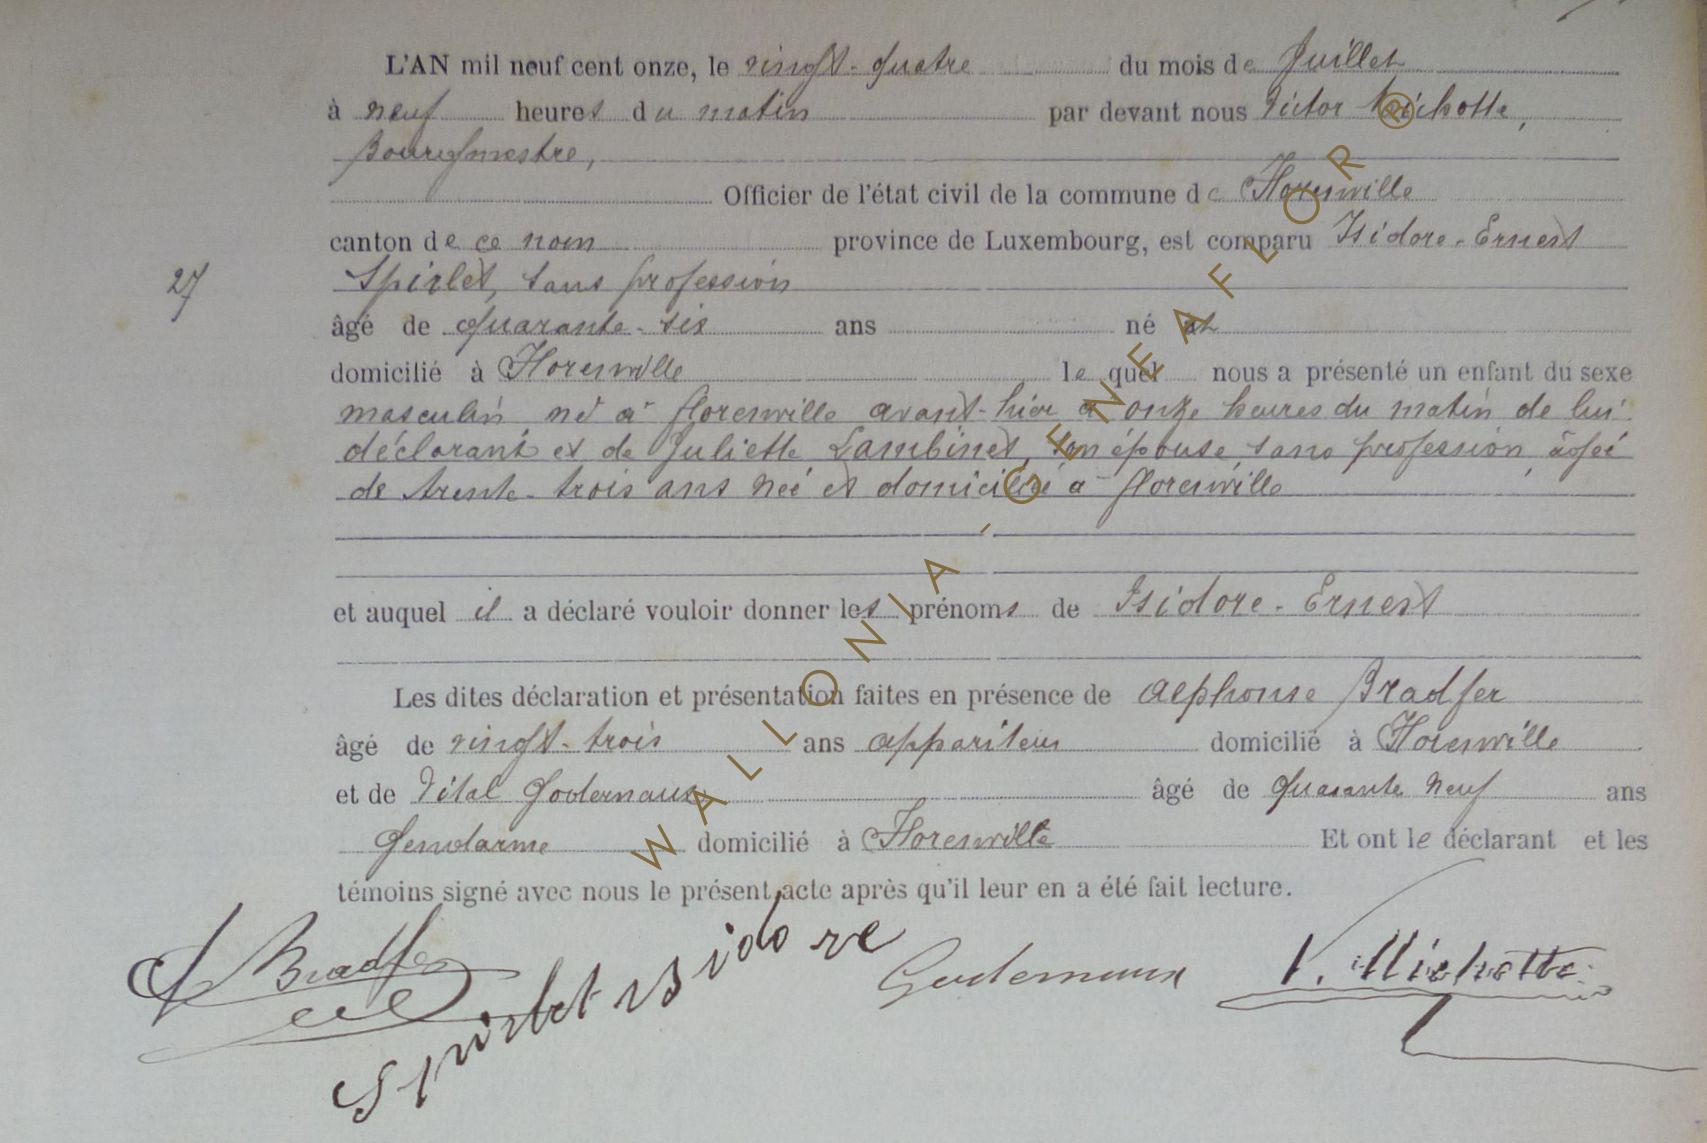 L'AN mil neuf cent onze, le vingt-quatre du mois de Juillet
à neuf heures du matin par devant nous Victor Michotte,
Bourgmestre,
Officier de l'état civil de la commune de Florenville
canton de ce nom province de Luxembourg, est comparu Isidore-Ernest
27 Spirlet, sans profession
âgé de quarante-six ans né et
domicilié à Florenville lequel nous a présenté un enfant du sexe
masculin né à florenville avant-hier à onze heures du matin de lui
déclarant et de Juliette Lambinet, son épouse, sans profession, âgée
de trente-trois ans née et domiciliée à florenville
et auquel il a déclaré vouloir donner les prénoms de Isidore-Ernest
Les dites déclaration et présentation faites en présence de Alphonse Bradfer
âgé de vingt-trois ans appariteur domicilié à Florenville
et de Vital Godernaux âgé de quarante neuf ans
Gendarme domicilié à Florenville Et ont le déclarant et les
témoins signé avec nous le présent acte après qu'il leur en a été fait lecture.
A Bradfer Spirlet isidore Godernaux V. Michotte
WALLONIA-GENEAFLOR ®